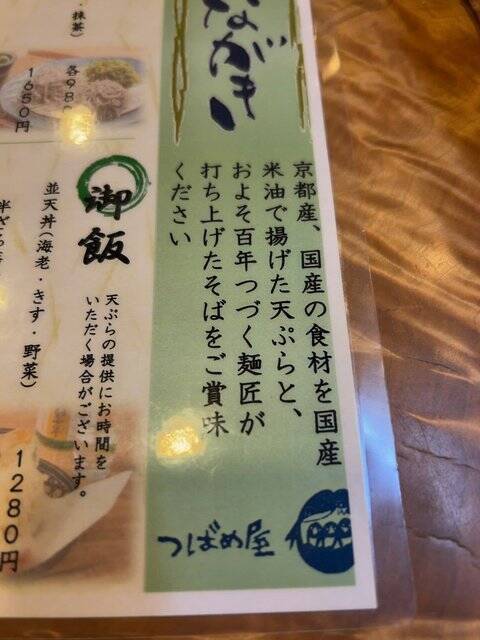 ながき
京都産、国産の食材を国産
米油で揚げた天ぷらと、
およそ百年つづく麺匠が
打ち上げたそばをご賞味
ください
つばめ屋
抹茶）
1650円
御飯
天ぷらの提供にお時間を
いただく場合がございます。
並天丼（海老・きす・野菜）
1280円